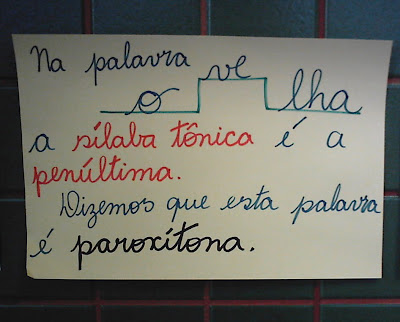 Na palavra
o ve lha
a sílaba tônica é a
penúltima.
Dizemos que esta palavra
é paroxítona.